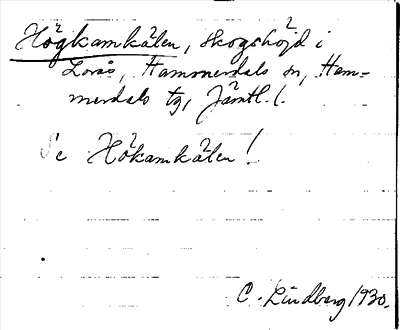 Högkamkälen, skogshöjd i
Lorås, Hammerdals sn, Ham-
merdals tg, Jämtl. l.
Se Hökamkälen!
C. Lindberg 1930.